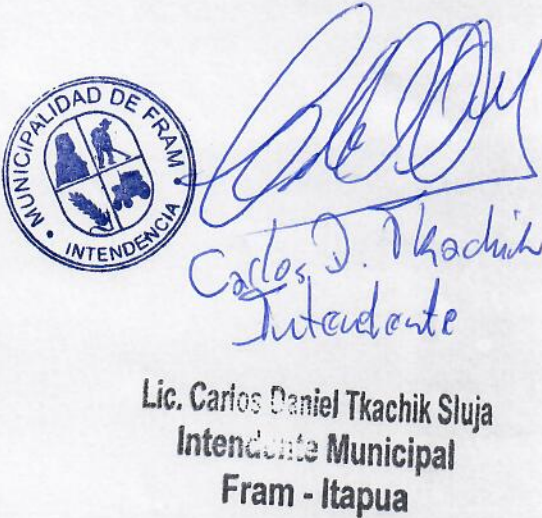 MUNICIPALIDAD DE FRAM
INTENDENCIA
Carlos D. Tkachik
Intendente
Lic. Carlos Daniel Tkachik Sluja
Intendente Municipal
Fram - Itapua